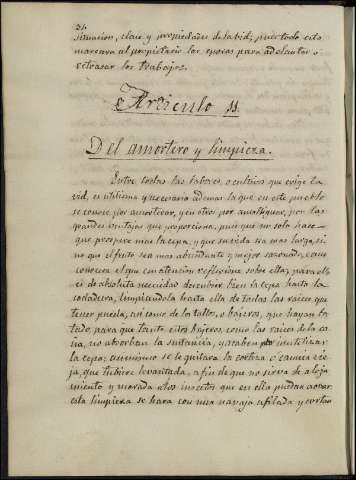 51.
situacion, clase y propiedades de la vid; pues todo esto
marcara al propietario las epocas para adelantar o
retrasar los trabajos.
Articulo 11
Del amortero y limpieza.
Entre todas las labores, o cultivos que exige la
vid, es utilisima y necesaria ademas la que en este pueblo
se conoce por amorterar, y en otros por
grandes ventajas que proporciona, pues que no solo hace
que prospere mas la cepa, y que su vida sea mas larga, si
no que el fruto sea mas abundante y mejor sazonado, como
conocera el que con atencion reflexione sobre ellas; para ello
es de absoluta necesidad descubrir bien la cepa hasta la
soldadura, limpiandola hasta ella de todas las raices que
tener pueda, asi como de los tallos, o bajeros, que hayan bro
tado, para que tanto estos bajeros, como las raices de la ce
pa, no absorban la sustancia, y acaben por inutilizar
la cepa; asimismo se le quitara la corteza o camisa vie
ja, que tubiere levantada, a fin de que no sirva de aloja
miento y morada a los insectos que en ella puedan aovar
esta limpieza se hara con una navaja afilada y cortan